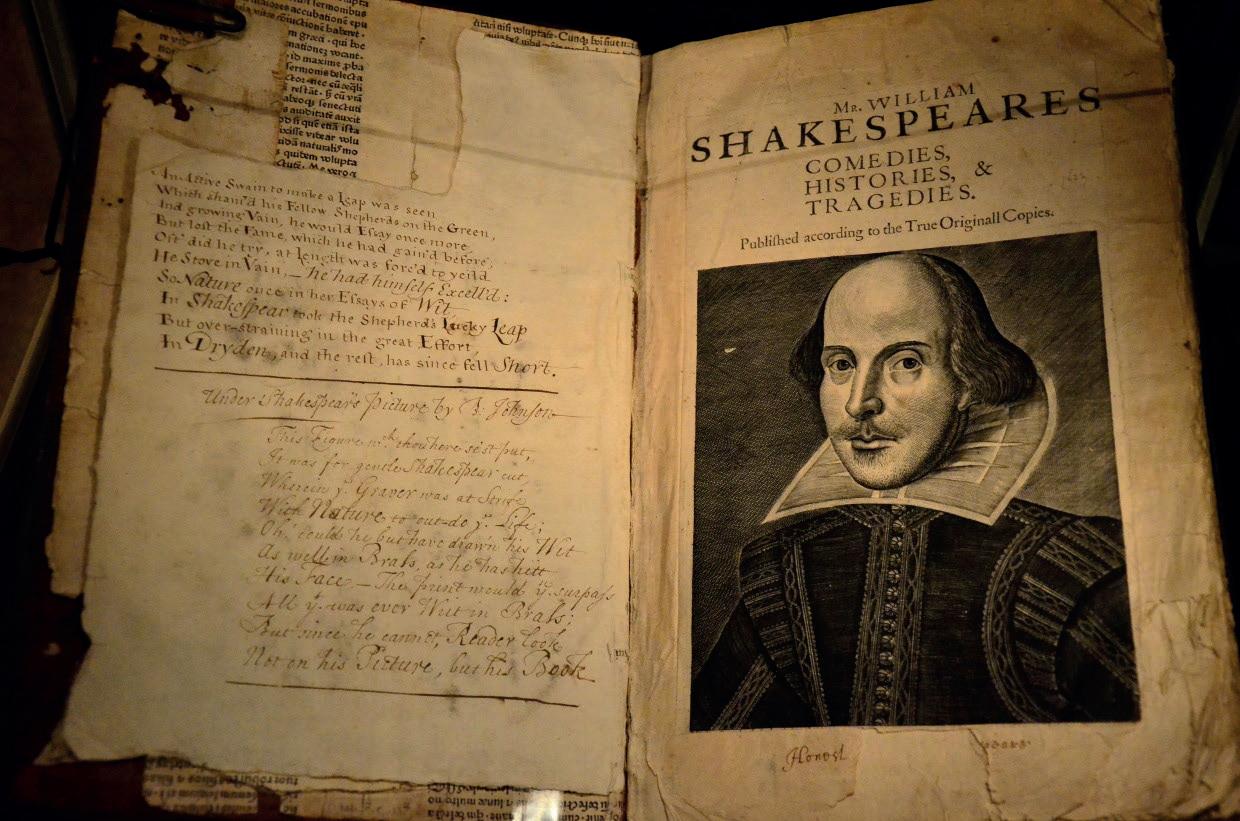 sermonibus
maiores accubationē epu
m greci · qui hoc
nationez vocant·
id maxime ꝓba
sermonis delecta
senectuti
auiditatē auxit
q̄ etiā ista
ixisse videar volu
naturalē mo
quidem volupta
nisi voluptate · Cunqꝫ
An Active Swain to make a Leap was seen
Which sham'd his Fellow Shepherds on the Green,
And growing Vain, he would Essay once more,
But lost the Fame, which he had gain'd before;
Oft' did he try, at Length was forc'd to yeild
He Stove in Vain, — he had himself Excell'd:
So Nature once in her Essays of Wit,
In Shakespear took the Shepherd's Lucky Leap
But over-straining in the great Effort
In Dryden, and the rest, has since fell Short.
Under Shakespear's Picture by B: Johnson
This Figure wch. thou here seest put,
It was for gentle Shakespear cut,
Wherein ye. Graver was at Strife
With Nature to out-do ye. Life;
Oh! could he but have drawn his Wit
As well in Brass, as he has hitt
His Face — The print would yn. surpass
All yt. was ever Writ in Brass;
But since he cannot, Reader look
Not on his Picture, but his Book
Mr. WILLIAM
SHAKESPEARES
COMEDIES,
HISTORIES, &
TRAGEDIES.
Publiſhed according to the True Originall Copies.
Honest